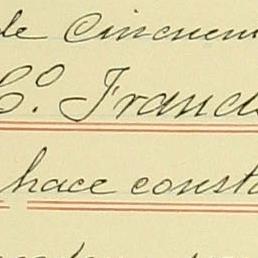 de cincuen
C.º Franc
hace const